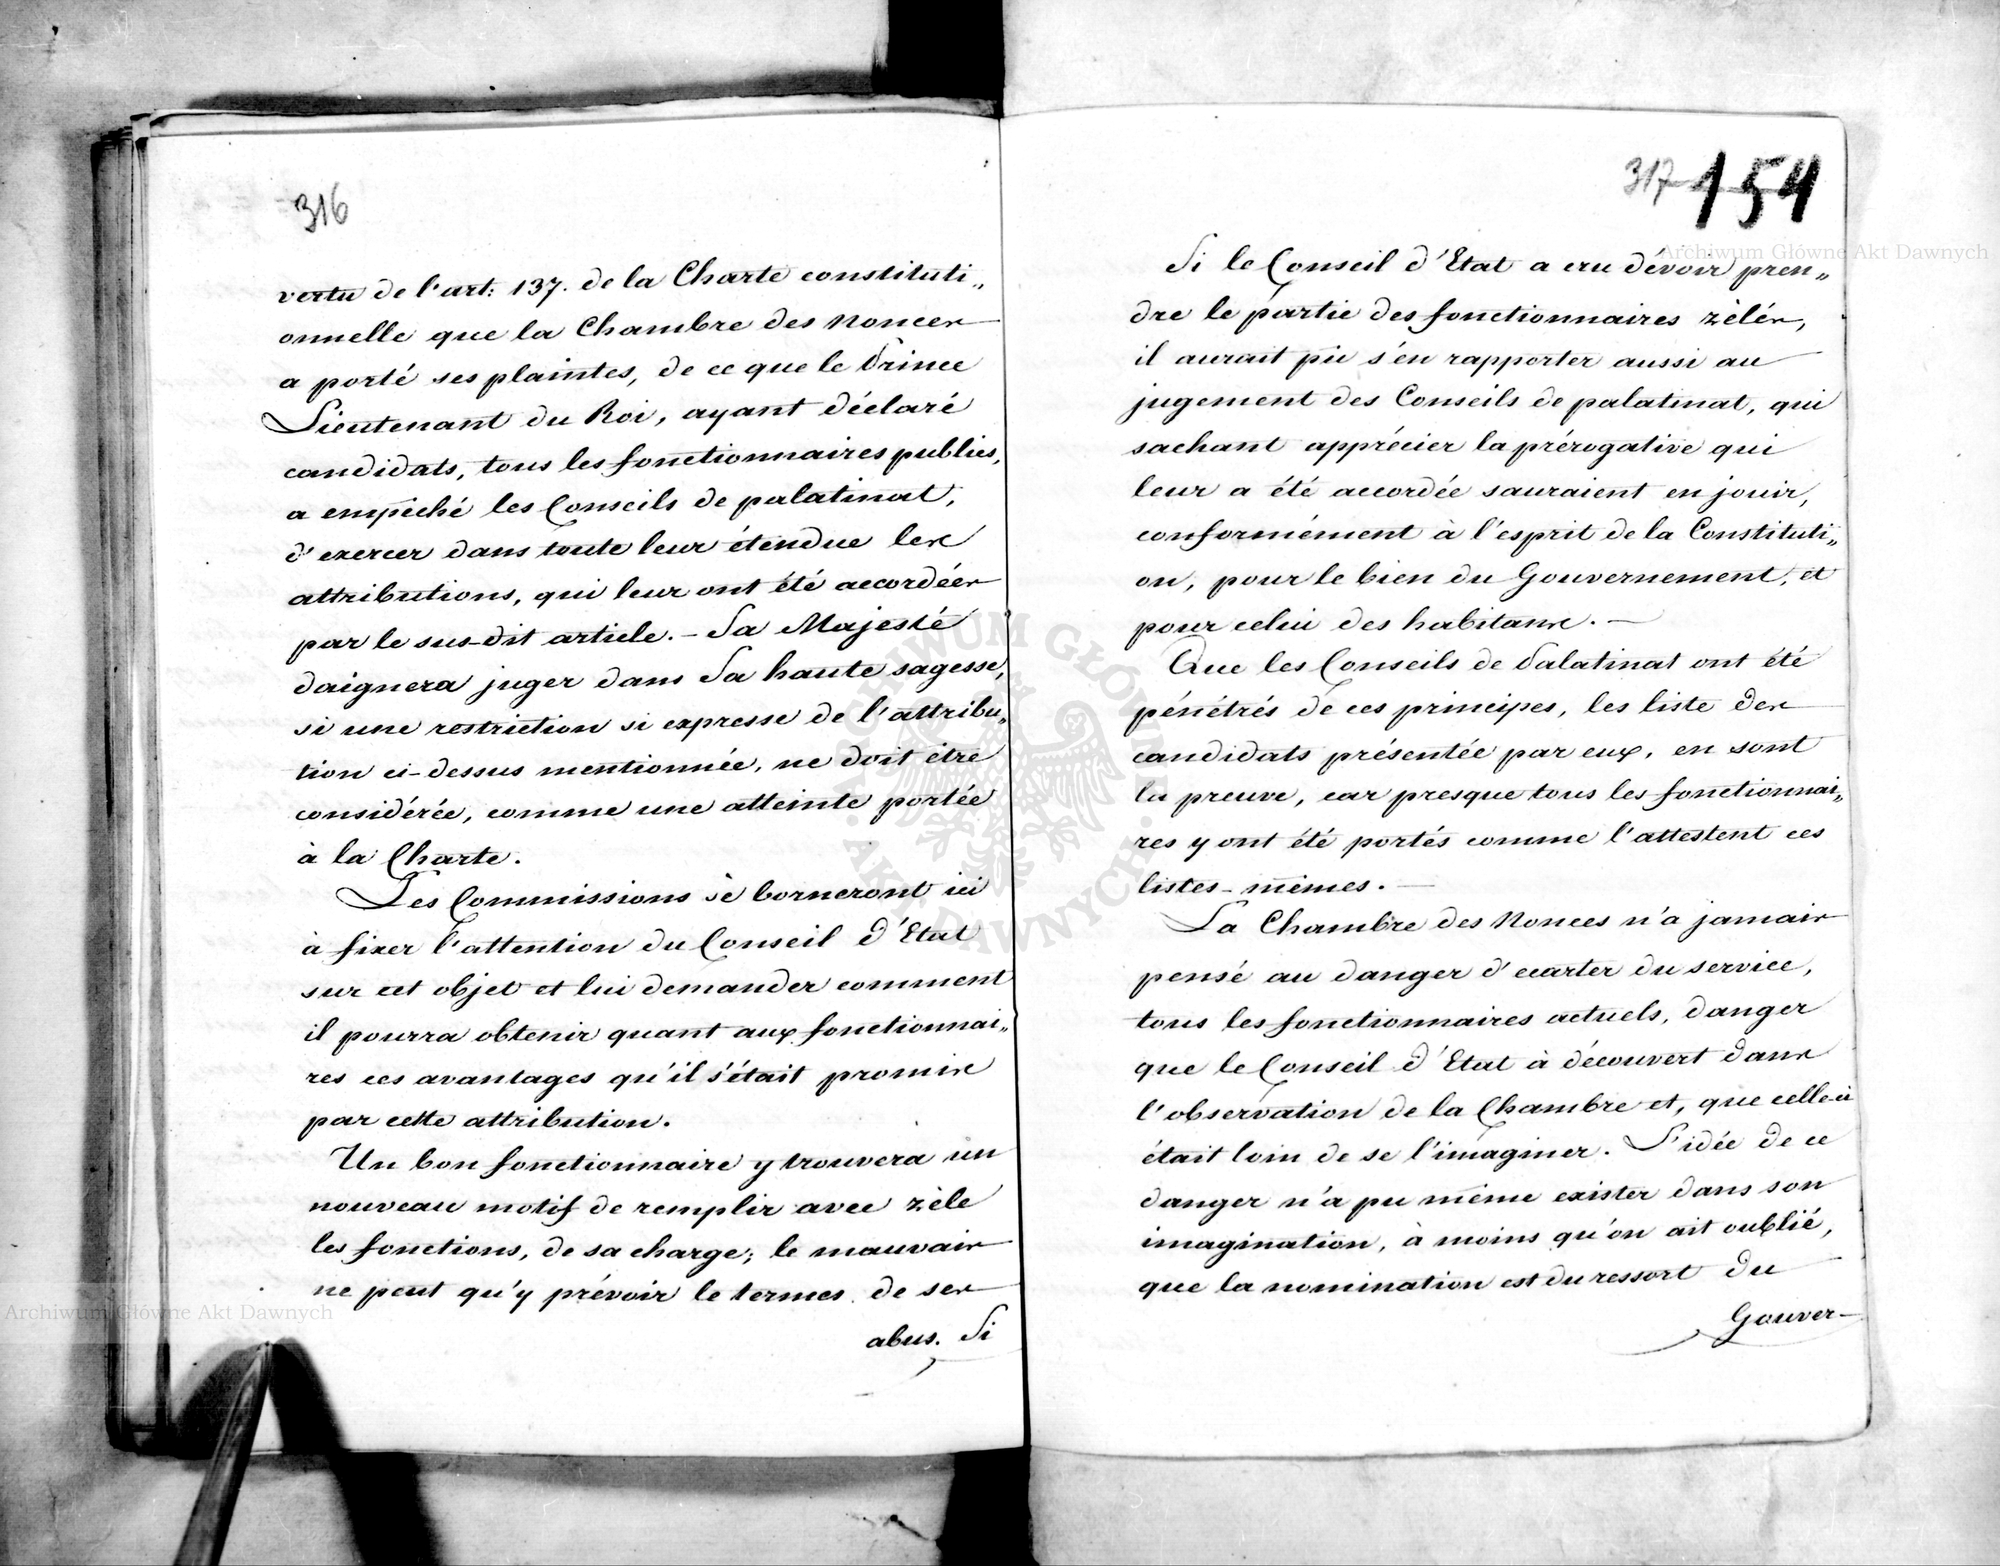 316
vertu de l'art: 137. de la Charte constituti„
onnelle que la Chambre des Nonces
a porté ses plaintes, de ce que le Prince
Lieutenant du Roi, ayant déclaré
candidats, tous les fonctionnaires publics,
a empêché les Conseils de palatinat,
d'exercer dans toute leur étendue les
attributions, qui leur ont été accordées
par le sus-dit article. – Sa Majesté
daignera juger dans Sa haute sagesse,
si une restriction si expresse de l'attribu„
tion ci-dessus mentionnée, ne doit être
considérée, comme une atteinte portée
à la Charte.
Les Commissions se borneront ici
à fixer l'attention du Conseil d'Etat
sur cet objet et lui demander comment
il pourra obtenir quant aux fonctionnai„
res ces avantages qu'il s'était promis
par cette attribution.
Un bon fonctionnaire y trouvera un
nouveau motif de remplir avec zèle
les fonctions, de sa charge; le mauvais
ne peut qu'y prévoir le termes de ses
abus. Si
317 154
Si le Conseil d'Etat a cru dévoir pren„
dre le partie des fonctionnaires zèlés,
il aurait pû s'en rapporter aussi au
jugement des Conseils de palatinat, qui
sachant apprécier la prérogative qui
leur a été accordée sauraient en jouir,
conformément à l'esprit de la Constituti„
on, pour le bien du Gouvernement, et
pour celui des habitans. –
Que les Conseils de Palatinat ont été
pénétrés de ces principes, les liste des
candidats présentée par eux, en sont
la preuve, car presque tous les fonctionnai„
res y ont été portés comme l'attestent ces
listes-mêmes. –
La Chambre des Nonces n'a jamais
pensé au danger d'ecarter du service,
tous les fonctionnaires actuels, danger
que le Conseil d'Etat à découvert dans
l'observation de la Chambre et, que celle-ci
était loin de se l'imaginer. L'idée de ce
danger n'a pu même exister dans son
imagination, à moins qu'on ait oublié,
que la nomination est du ressort du
Gouver-
Archiwum Główne Akt Dawnych
Archiwum Główne Akt Dawnych
ARCHIWUM GŁÓWNE AKT DAWNYCH